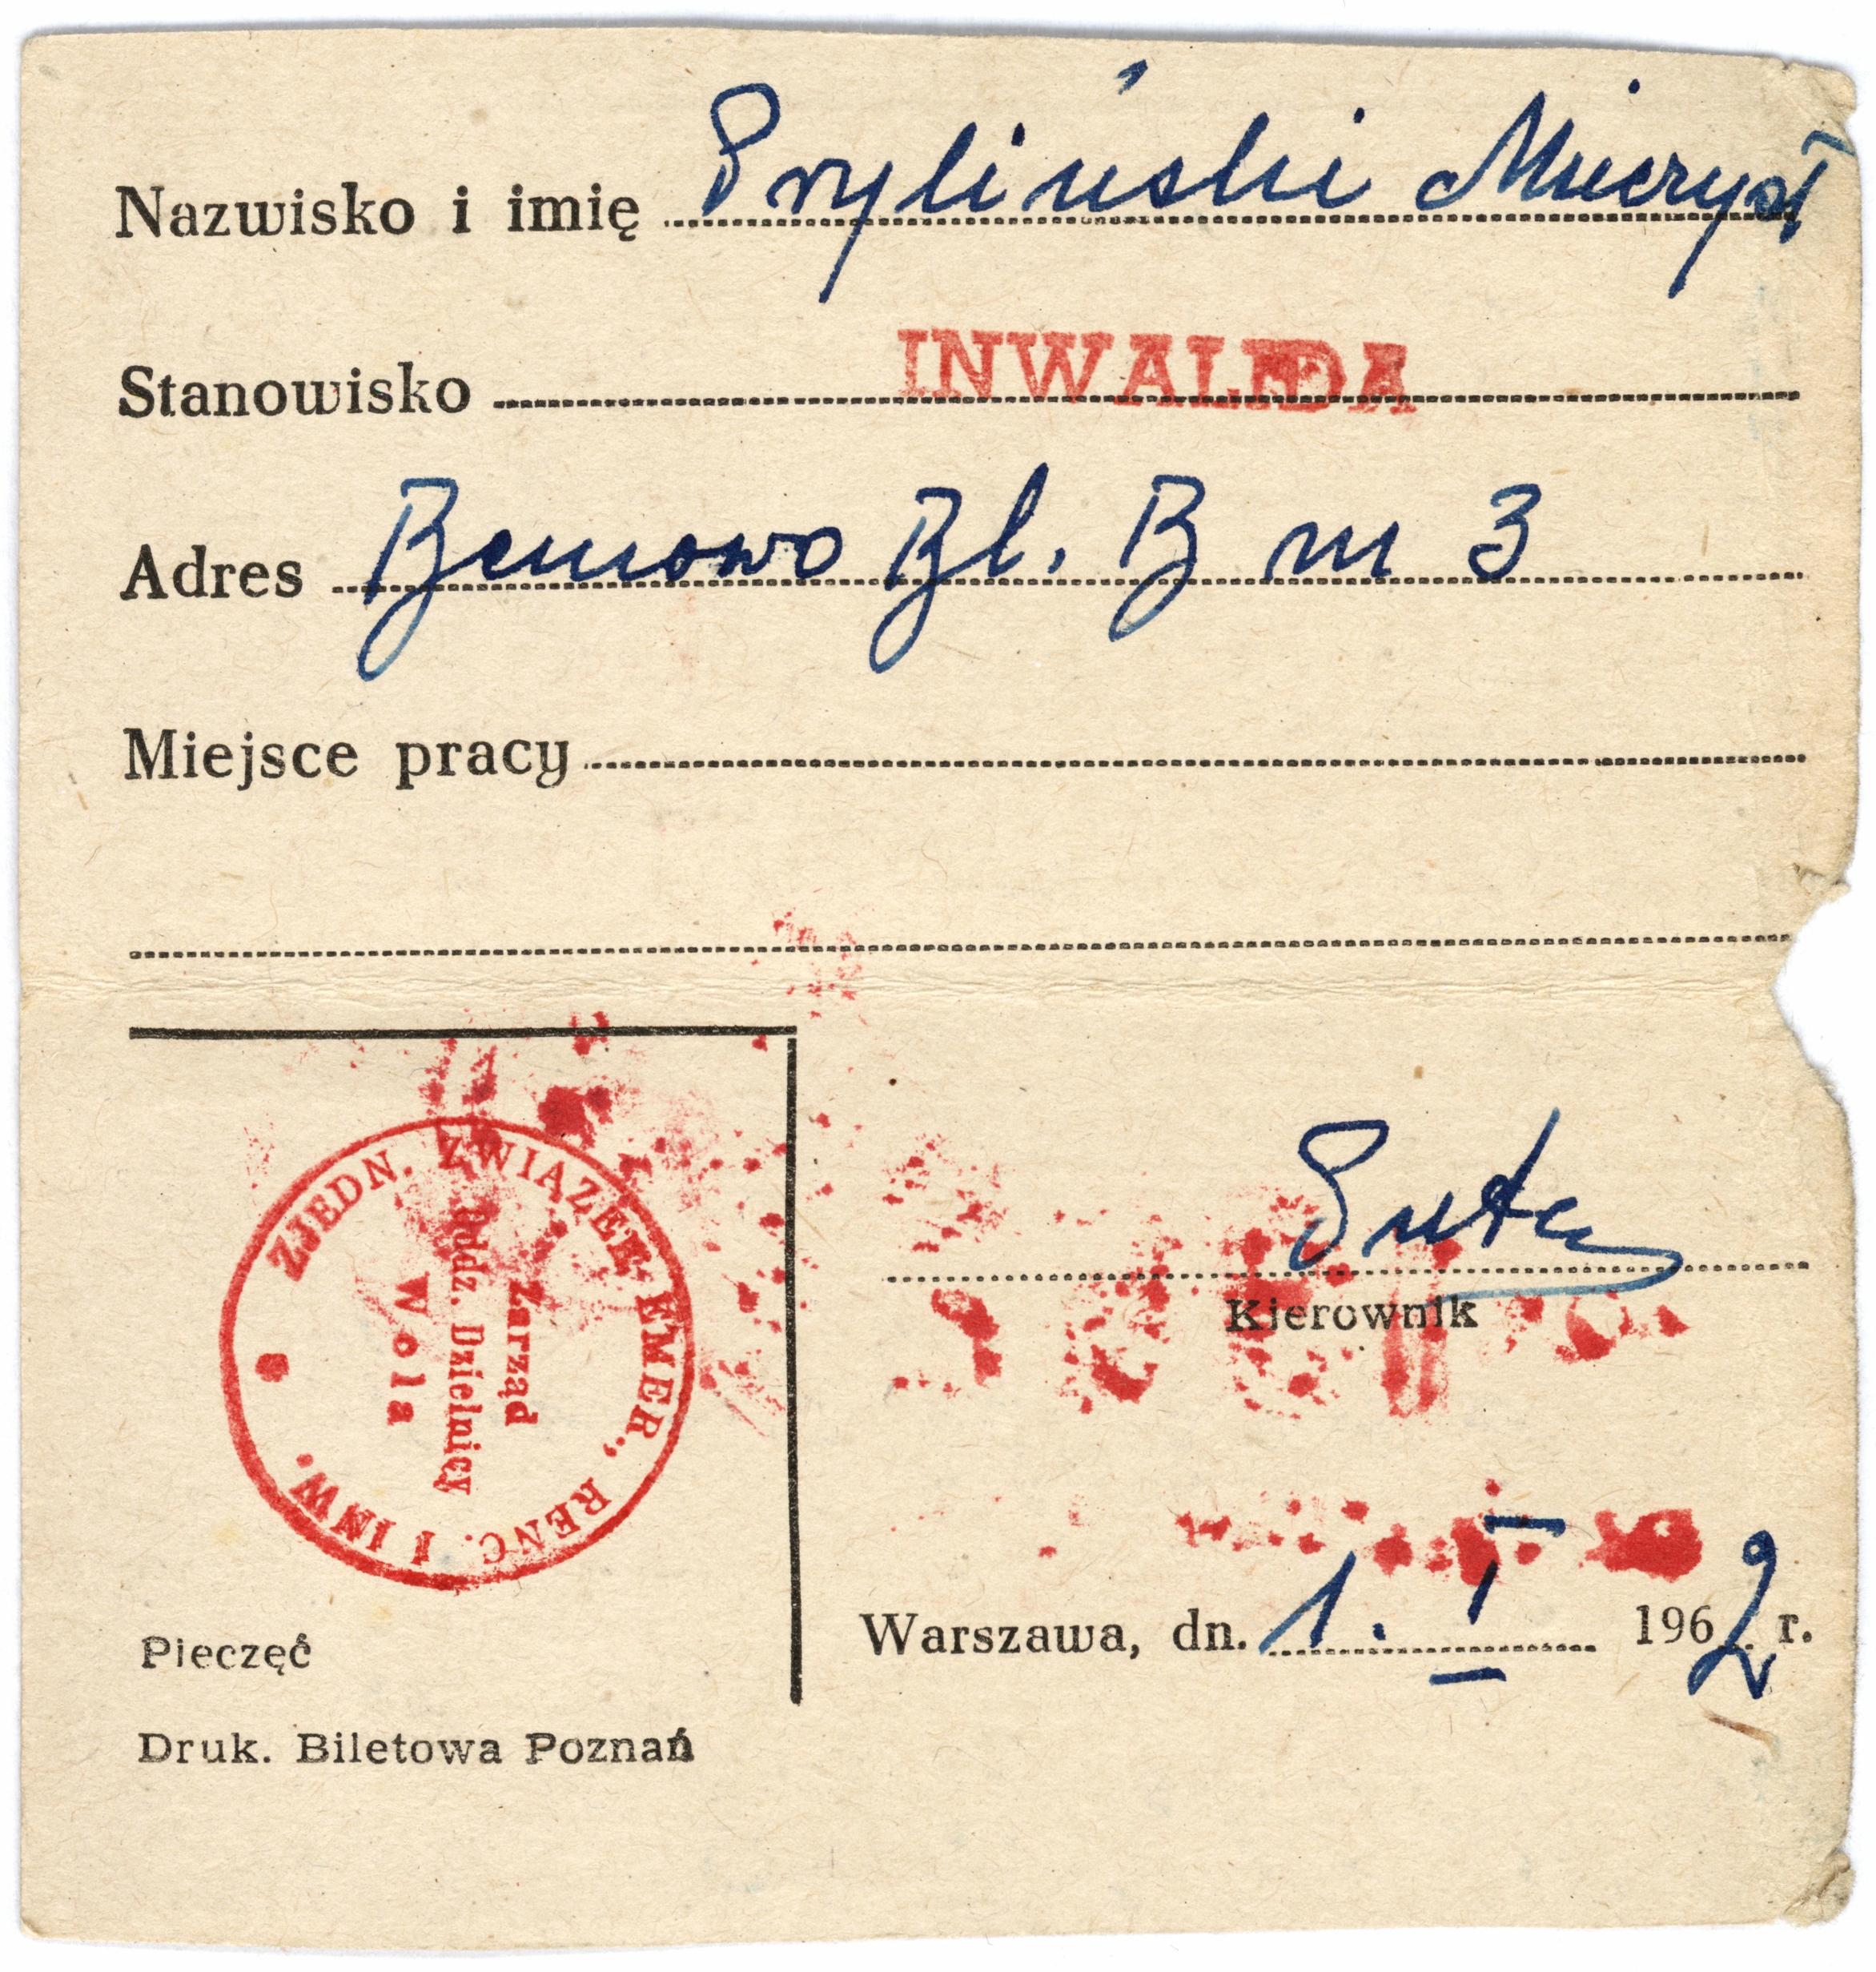 Nazwisko i imię Pryliński Mieczysł
Stanowisko INWALIDA
Adres Bemowo Bl. B m 3
Miejsce pracy
ZJEDN. ZWIĄZEK EMER., RENC. I INW.
Zarząd
Oddz. Dzielnicy
Wola
Kierownik
Warszawa, dn. 1. I 1962 r.
Pieczęć
Druk. Biletowa Poznań